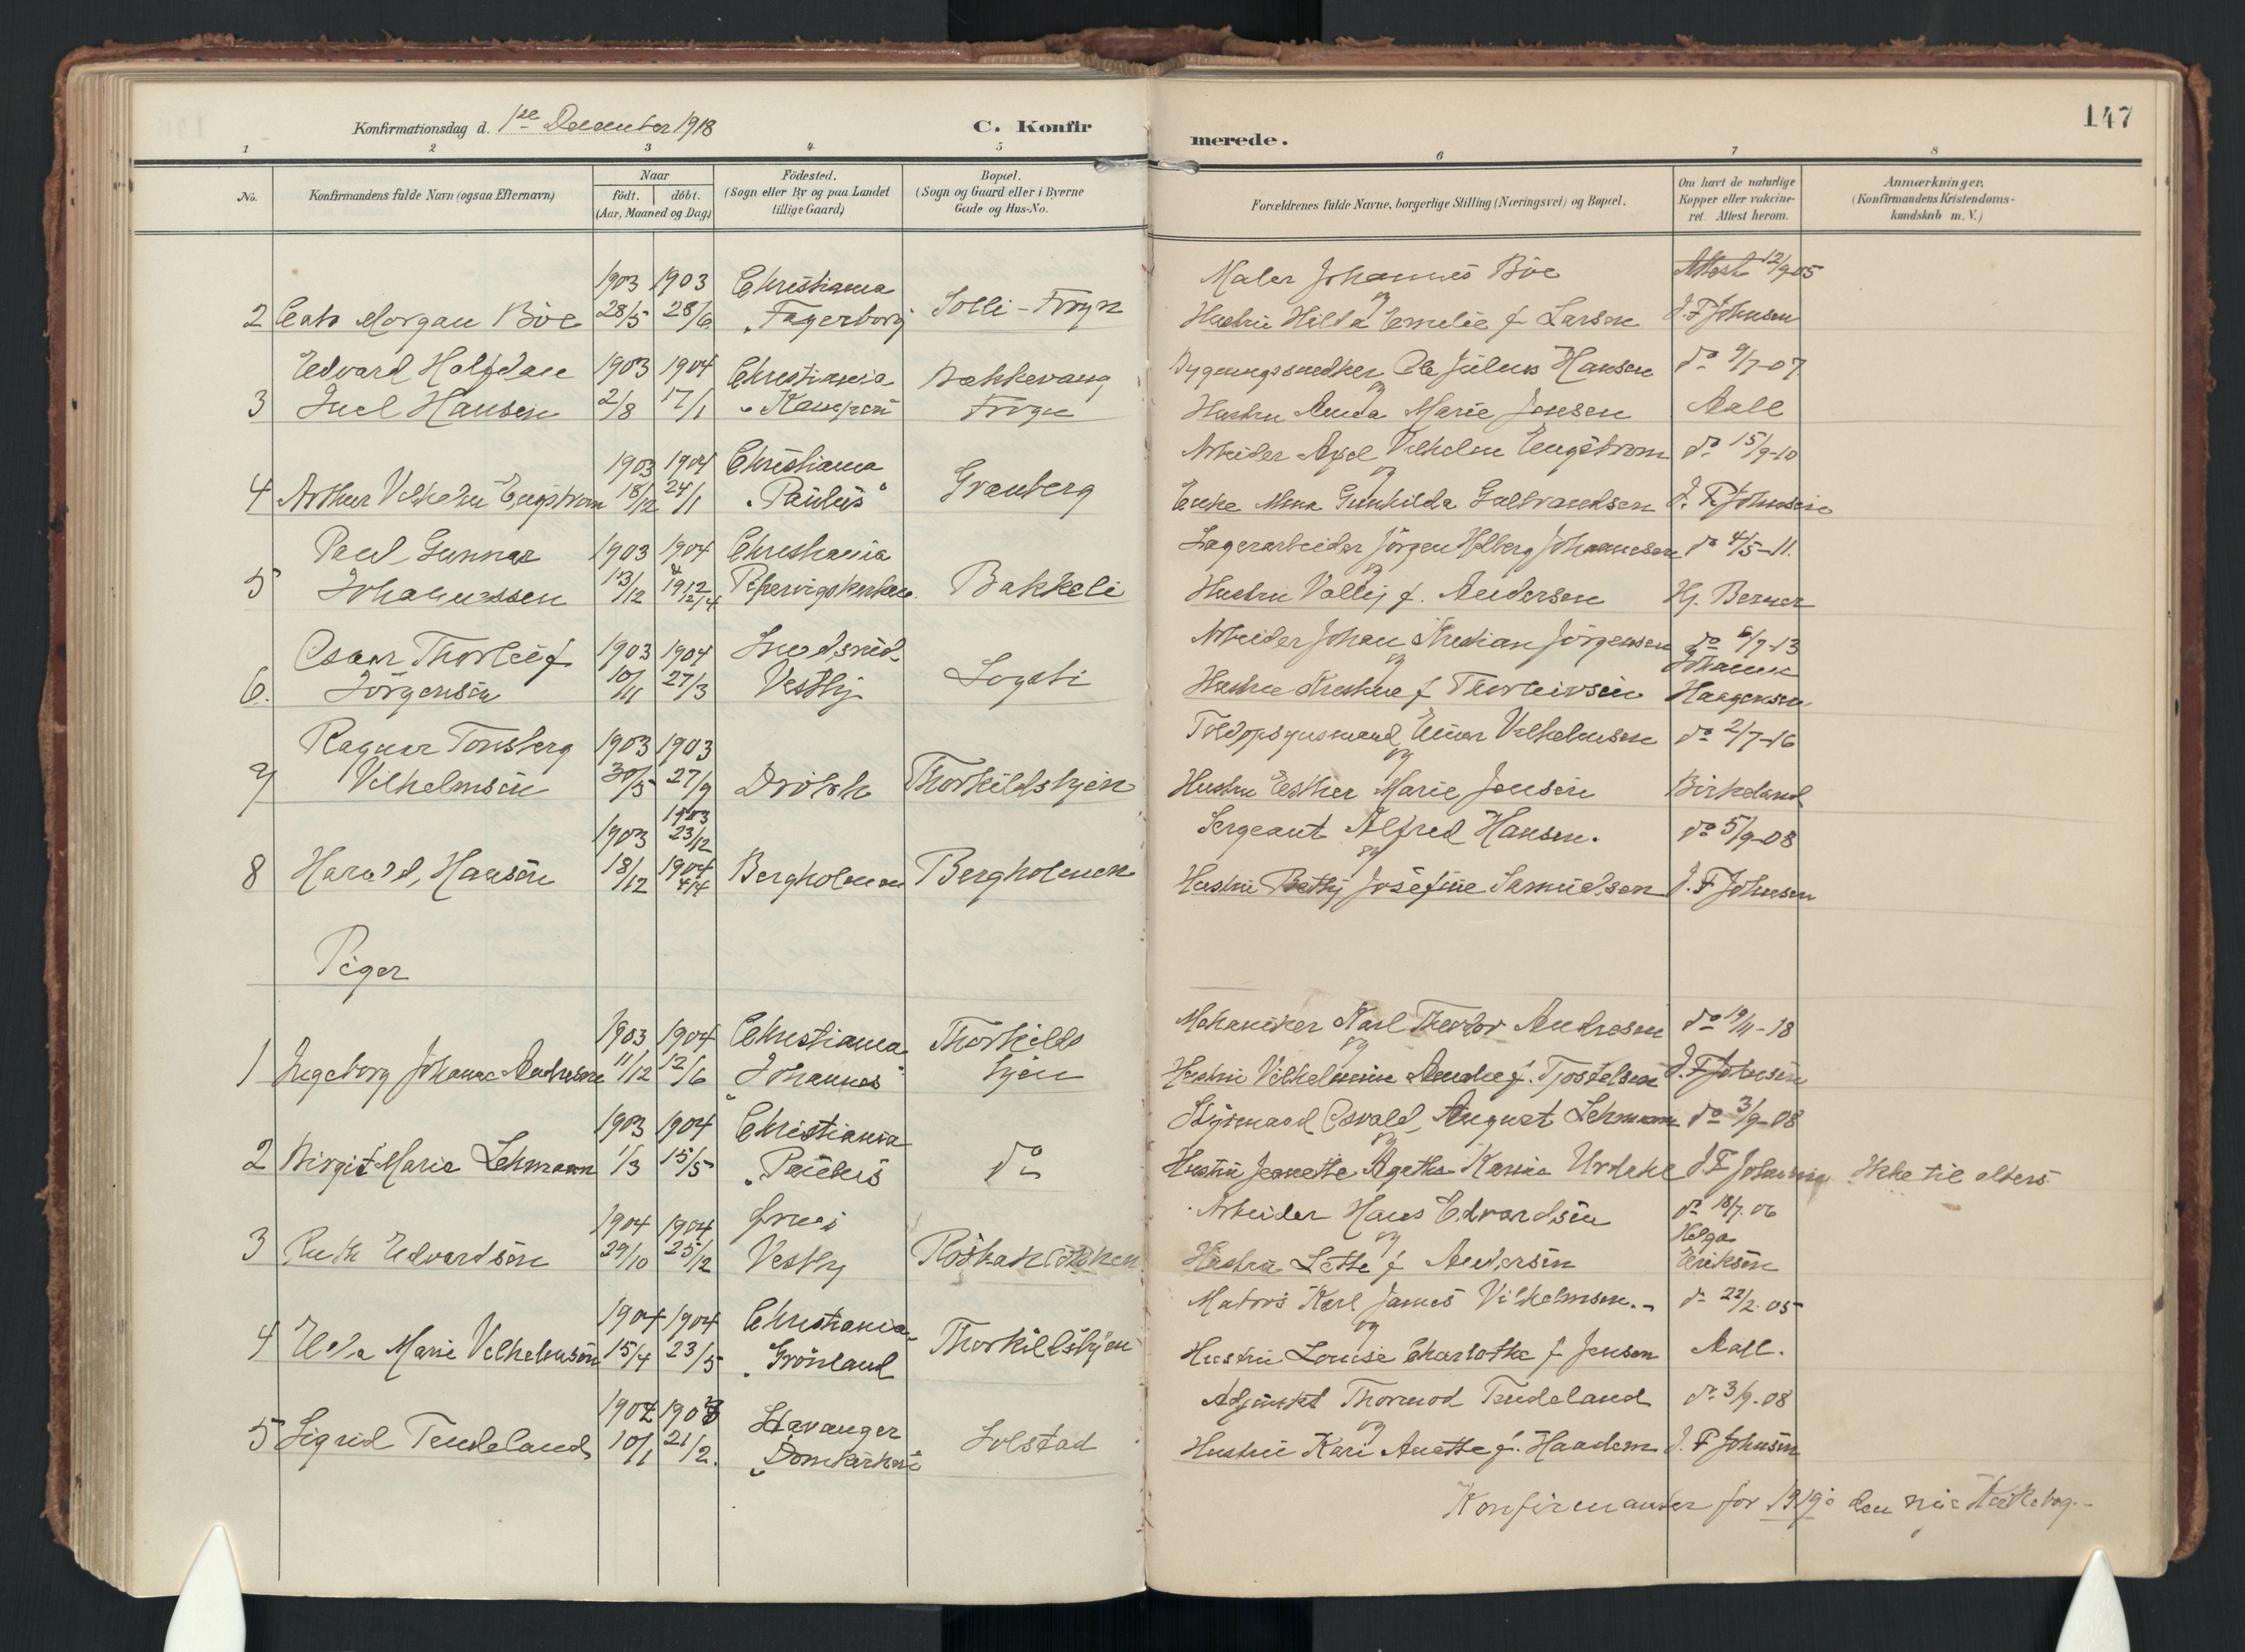 147
Konfirmationsdag d. 1ste December 1918
C. Konfir
merede.
1 2 3 4 5 6 7 8
No.
Konfirmandens fulde Navn (ogsaa Efternavn)
Naar
födt. döbt.
(Aar, Maaned og Dag)
Födested.
(Sogn eller By og paa Landet
tillige Gaard)
Bopæl.
(Sogn og Gaard eller i Byerne
Gade og Hus-No.
Forældrenes fulde Navne, borgerlige Stilling (Næringsvei) og Bopæl.
Om havt de naturlige
Kopper eller vakcine-
ret. Attest herom.
Anmærkninger,
(Konfirmandens Kristendoms-
kundskab m. V.)
1903 1903 Christiania Maler Johannes Böe Attest 12/9 05
2 Cato Morgan Böe 28/5 28/6 „Fagerborg Solli - Frogn og Hustru Hilda Emelie f Larsen J. F Johnsen
Edvard Halfdan 1903 1904 Christiania Bakkevang Bygningssnedker Ole Julius Hansen do 9/7-07
3 Juel Hansen 2/8 17/1 „Kampen Frogn og Hustru Anna Marie Jensen Aall
1903 1904 Christiania Arbeider Axel Vilhelm Engström do 15/9-10
4 Arthur Vilhelm Engström 18/12 24/1 „Paulus" Granberg og Enke Mina Gunhilda Gulbrandsen J. F. Johnsen
Paul Gunnar 1903 1904 Christiania Lagerarbeider Jörgen Holberg Johannesen do 4/5-11.
5 Johannessen 13/12 1912 12/4 Pipervigskirken Bakkeli og Hustru Vally f. Andersen Hj. Berner
Oscar Thorleif 1903 1904 Arbeider Johan Kristian Jörgensen do 6/7-13
6. Jörgensen 10/11 27/3 Vestby og Hustru Kristine f Thorleivsen Johanne Haagensen
Ragnar Tonsberg 1903 1903 Toldopsynsmand Einar Vilhelmsen do 2/7-16
7 Vilhelmsen 30/5 27/9 Dröbak Thorkildsbyen og Hustru Esther Marie Jensen Birkeland
1903 1903 23/12 Sergeant Alfred Hansen. do 5/9-08
8 Harald, Hansen 18/12 1904 4/4 Bergholmen Bergholmen og Hustru Bethy Josefine Samuelsen J. F Johnsen
Piger
1903 1904 Christiania Thorkilds Mekaniker Karl Theodor Andresen do 19/11-18
1 Ingeborg Johanne Andresen 11/12 12/6 „Johannes" byen og Hustru Vilhelmine Amalie f. Tjostelsen J. F Johnsen
1903 1904 Christiania Styrmand Osvald August Lehmann do 3/9-08
2 Birgit Marie Lehmann 1/3 15/5 „Paulus do og Hustru Jeanette Agathe Karina Urdahl J F Johnsen Ikke til alters
1904 1904 Arbeider Hans Edvardsen do 18/7. 06
3 Ruth Edvardsen 29/10 25/12 Vestby og Hustru Lette f Andersen Helga Eriksen
1904 1904 Christiania Matros Karl James Vilhelmsen.- do 22/2. 05
4 Ella Marie Vilhelmsen 15/4 23/5 „Grönland Thorkildsbyen og Hustru Louise Charlotte f Jensen Aall.
1902 1903 Stavanger Adjunkt Thormod Tendeland do. 3/9. 08
5 Sigrid Tendeland 10/1 21/2. „Domkirken Solstad og Hustru Kari Anette f. Haadem J. F Johnsen
Konfirmanter for 1919 i den nye Kirkebog.-